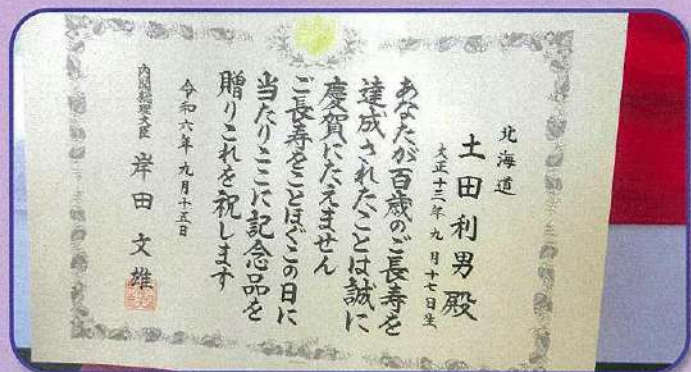 北海道
土田利男殿
大正十三年九月十七日生
あなたが百歳のご長寿を
達成されたことは誠に
慶賀にたえません
ご長寿をことほぐこの日に
当たりここに記念品を
贈りこれを祝します
令和六年九月十五日
内閣総理大臣 岸田文雄